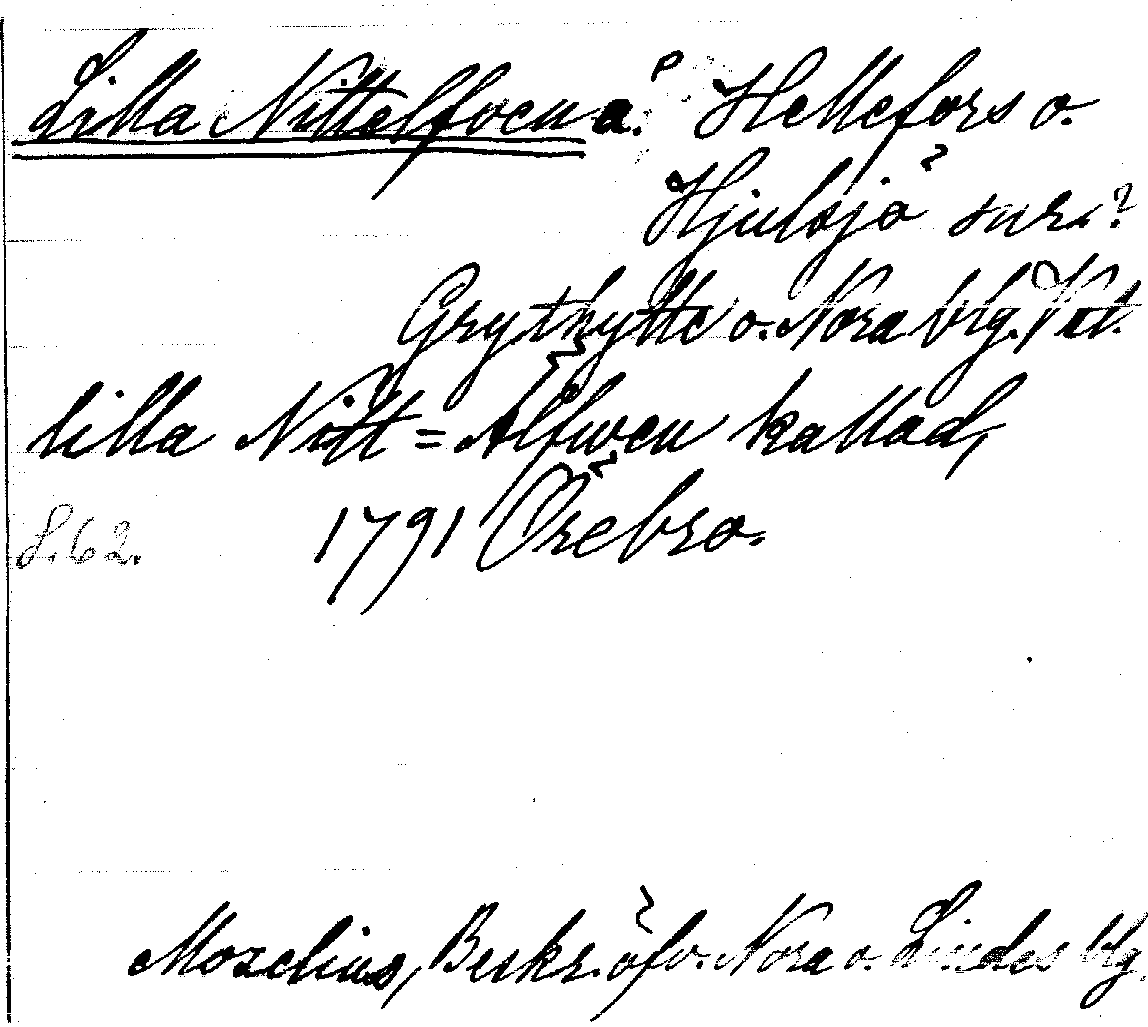 Lilla Nittelfven å? Hellefors o.
Hjulsjö snr?
Grythytte o. Nora blg. Vstm.
lilla Nitt=Älfven kallad,
1791 Örebro.
S. 62.
Mozelius, Beskr. öfv. Nora o. Lindes blg.